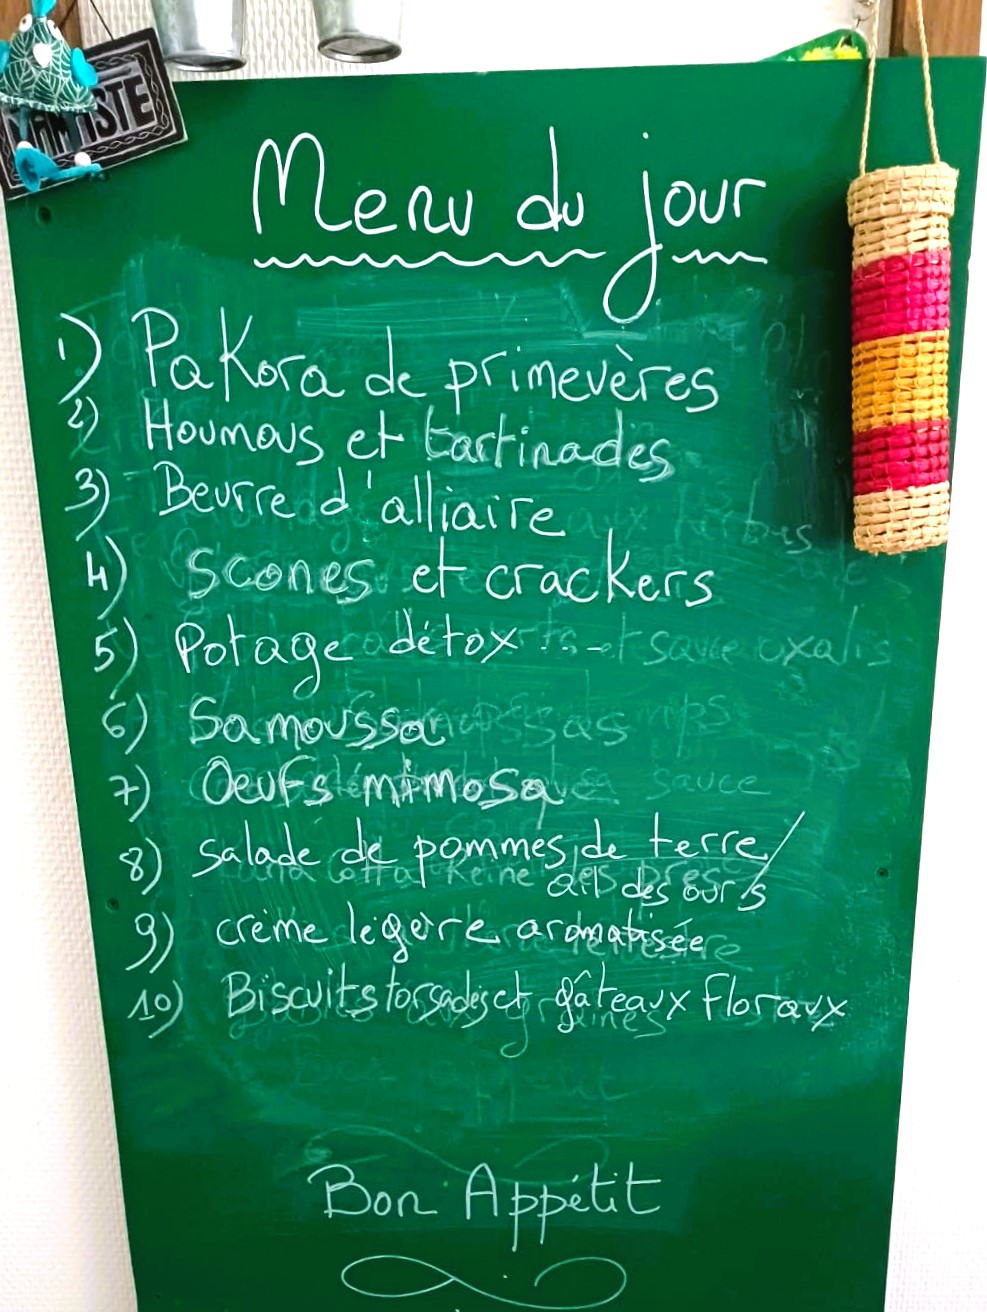 Menu du jour
1) Pakora de primevères
2) Houmous et tartinades
3) Beurre d'alliaire
4) Scones et crackers
5) Potage détox
et sauce oxalis
6) Samoussa
7) Oeufs mimosa
sauce
8) salade de pommes de terre/
ail des ours
9) crème légère aromatisée
10) Biscuits torsadés et gâteaux floraux
Bon Appétit